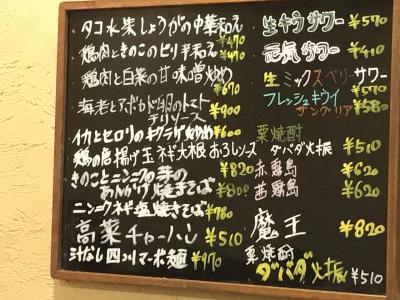 タコ水菜しょうがの中華和え
¥470
鶏肉ときのこのピリ辛和え
¥470
鶏肉と白菜の甘味噌炒め
¥670
海老とアボカド卵のトマト
チリソース ¥900
イカとセロリのキクラゲ炒め ¥600
鶏の唐揚げ玉ネギ大根おろしソース
¥820
きのことニンニクの芽の
あんかけ焼きそば ¥800
ニンニクネギ塩焼きそば ¥780
高菜チャーハン ¥510
汁なし四川マーボ麺 ¥970
生キウサワー ¥570
元気サワー ¥410
生ミックスベリーサワー
¥570
フレッシュキウイ
サングリア ¥580
栗焼酎
ダバダ火振 ¥510
赤霧島 ¥620
茜霧島 ¥620
魔王 ¥820
栗焼酎
ダバダ火振 ¥510